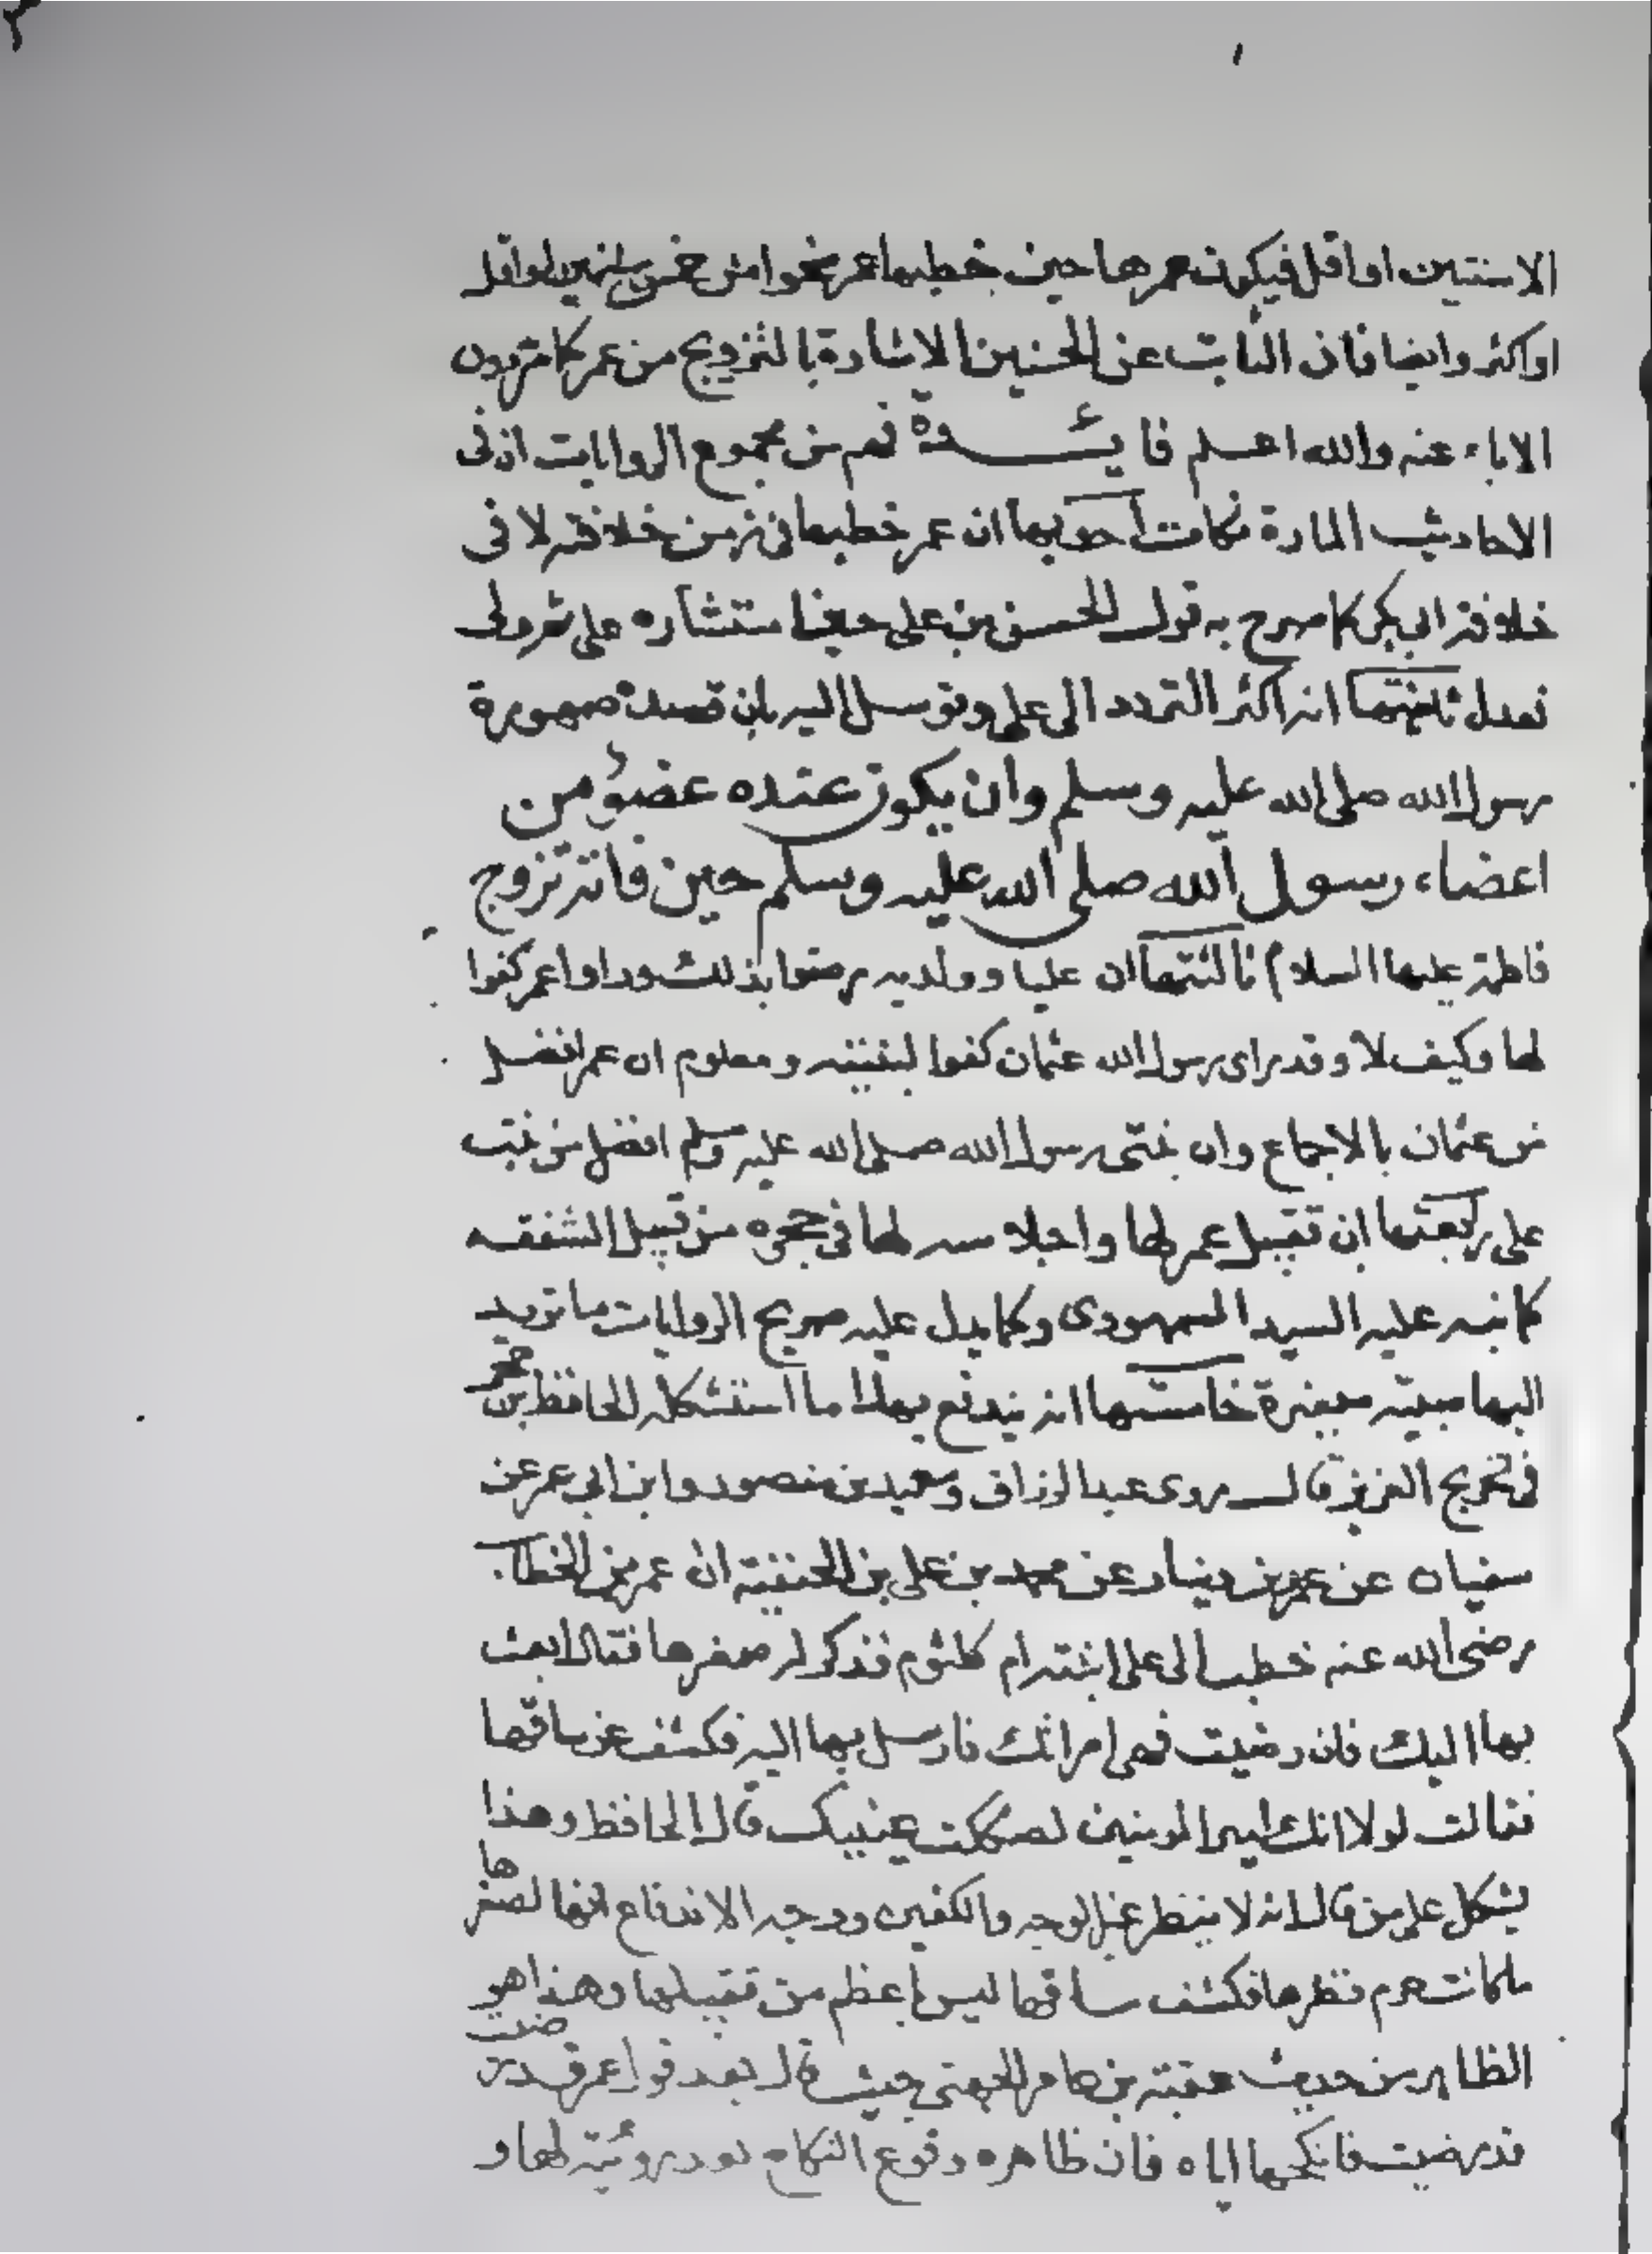 الاسنتين او اقل فيكون عمرها حين خطبها عمر نحوا من خمس سنين او اقل
او اكثر وايضا فان الثابت عن الحسنين الاشارة بالتزويج من عمر كا
الاباء عنه والله اعلم فايـــدة فهم من مجموع الروايات ان في
الاحاديث المارة نكات احديها ان عمر خطبها في زمن خلافته لا في
خلافة ابي بكر كا صرح به قول الحسن بن علي حين استشاره علي ثم ولي
فعدل ثانيتها انه اكثر التردد الى علي وتوسل اليه بان قصده صهورة
رسول الله صلى الله عليه وسلم وان يكون عنده عضؤ من
اعضاء رسول الله صلى الله عليه وسلم حين فاته تزوج
فاطمة عليها السلام ثالثتها ان عليا وولديه رضوا بذلك وراوا عمر كفوا
لها وكيف لا وقد راى رسول الله عثمان كفوا لبنتيه ومعلوم ان عمر افضل
من عثمان بالاجماع وان بنتي رسول الله صلى الله عليه وسلم افضل من بنت
علي رابعتها ان تقبيل عمر لها واجلاسه لها في حجره من قبيل الشفقه
كا نبه عليه السيد السمهودى وكما يدل عليه صريح الروايات
اليها صبية صغيرة خامستها انه يندفع بهذا ما استشكله الحافظ بن حجر
في تخريج العزيز قال روى عبد الرزاق وسعيد بن منصور وابن ابي عمر عن
سفيان عن عمرو بن دينار عن محمد بن علي بن الحنفية ان عمر بن الخطاب
رضى الله عنه خطب الى علي ابنته ام كلثوم فذكر له صغرها فقال ابعث
بها اليك فان رضيت فهي امراتك فارسل بها اليه فكشف عن ساقها
فقالت لولا انك امير المومنين لصككت عينيك قال الحافظ وهذا
يشكل على من قال انه لا ينظر غير الوجه والكفين ووجه الاندفاع انها لصغرها
ما كانت تحرم نظرها فكشف ساقها ليس باعظم من تقبيلها وهذا هو
الظاهر من حديث عقبة بن عامر الجهني حيث قال بعد قول عمر قد رضيت
قد رضيت فانكحها اياه فان ظاهره وقوع النكاح بعد رؤيته لها و